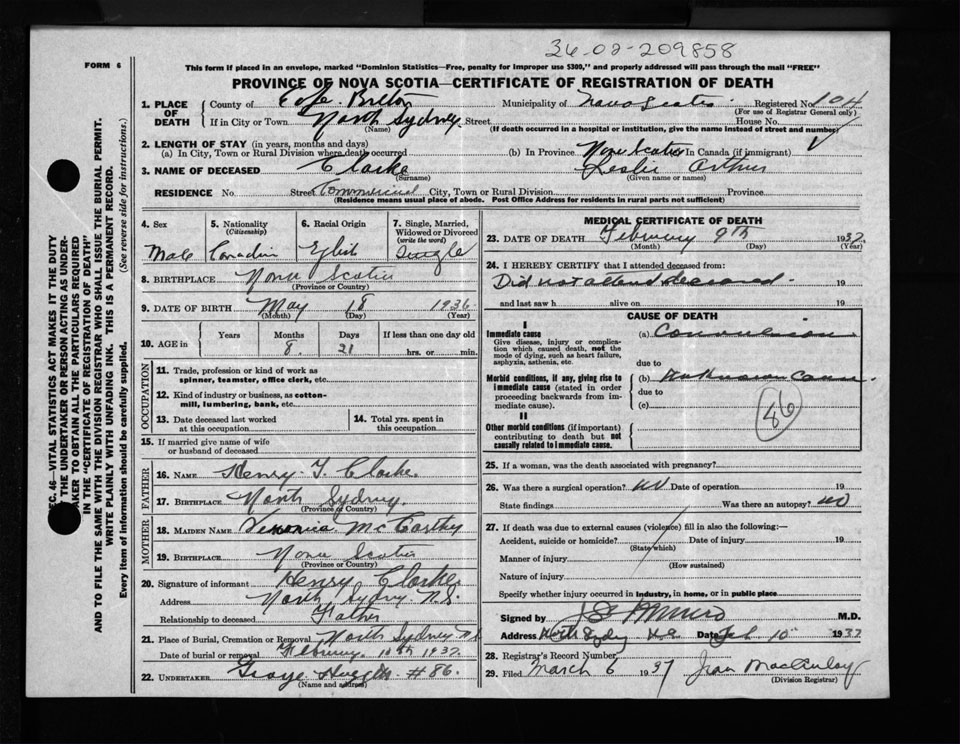 36-02-209858
FORM 6
This form if placed in an envelope, marked "Dominion Statistics—Free, penalty for improper use $300," and properly addressed will pass through the mail "FREE"
PROVINCE OF NOVA SCOTIA—CERTIFICATE OF REGISTRATION OF DEATH
1. PLACE OF DEATH
County of Cape Breton Municipality of Nova Scotia Registered No. 104
(For use of Registrar General only)
If in City or Town North Sydney Street House No.
(Name) (If death occurred in a hospital or institution, give the name instead of street and number)
2. LENGTH OF STAY (in years, months and days)
(a) In City, Town or Rural Division where death occurred (b) In Province Nova Scotia In Canada (if immigrant)
3. NAME OF DECEASED Clarke Leslie Arthur
(Surname) (Given name or names)
RESIDENCE No. Street Commercial City, Town or Rural Division Province
(Residence means usual place of abode. Post Office Address for residents in rural parts not sufficient)
4. Sex
Male
5. Nationality (Citizenship)
Canadian
6. Racial Origin
English
7. Single, Married, Widowed or Divorced (write the word)
Single
8. BIRTHPLACE Nova Scotia
(Province or Country)
9. DATE OF BIRTH May 18 1936
(Month) (Day) (Year)
10. AGE in
Years Months Days If less than one day old
8. 21 hrs. or min.
OCCUPATION
11. Trade, profession or kind of work as spinner, teamster, office clerk, etc.
12. Kind of industry or business, as cotton-mill, lumbering, bank, etc.
13. Date deceased last worked at this occupation
14. Total yrs. spent in this occupation
15. If married give name of wife or husband of deceased
FATHER
16. NAME Henry Clarke
17. BIRTHPLACE North Sydney.
(Province or Country)
MOTHER
18. MAIDEN NAME Veronica McCarthy
19. BIRTHPLACE Nova Scotia
(Province or Country)
20. Signature of informant Henry Clarke
Address North Sydney N.S.
Relationship to deceased Father
21. Place of Burial, Cremation or Removal North Sydney N.S
Date of burial or removal February 10th 1937.
22. UNDERTAKER #86.
(Name and address)
MEDICAL CERTIFICATE OF DEATH
23. DATE OF DEATH February 9th 1937
(Month) (Day) (Year)
24. I HEREBY CERTIFY that I attended deceased from:
Did not attend deceased. 19
and last saw h alive on 19
CAUSE OF DEATH
I
Immediate cause
Give disease, injury or complication which caused death, not the mode of dying, such as heart failure, asphyxia, asthenia, etc.
(a) Convulsion
due to
Morbid conditions, if any, giving rise to immediate cause (stated in order proceeding backwards from immediate cause).
(b) Unknown cause.
due to
(c)
86
II
Other morbid conditions (if important) contributing to death but not causally related to immediate cause.
25. If a woman, was the death associated with pregnancy?
26. Was there a surgical operation? No Date of operation 19
State findings Was there an autopsy? No
27. If death was due to external causes (violence) fill in also the following:—
Accident, suicide or homicide? Date of injury 19
(State which)
Manner of injury
(How sustained)
Nature of injury
Specify whether injury occurred in industry, in home, or in public place
Signed by Munro M.D.
Address North Sydney N.S. Date Feb 10" 1937
28. Registrar's Record Number
29. Filed March 6 1937
(Division Registrar)
SEC. 46—VITAL STATISTICS ACT MAKES IT THE DUTY OF THE UNDERTAKER OR PERSON ACTING AS UNDERTAKER TO OBTAIN ALL THE PARTICULARS REQUIRED IN THE "CERTIFICATE OF REGISTRATION OF DEATH"
AND TO FILE THE SAME WITH THE DIVISION REGISTRAR WHO SHALL ISSUE THE BURIAL PERMIT.
WRITE PLAINLY WITH UNFADING INK. THIS IS A PERMANENT RECORD.
Every item of information should be carefully supplied. (See reverse side for instructions.)